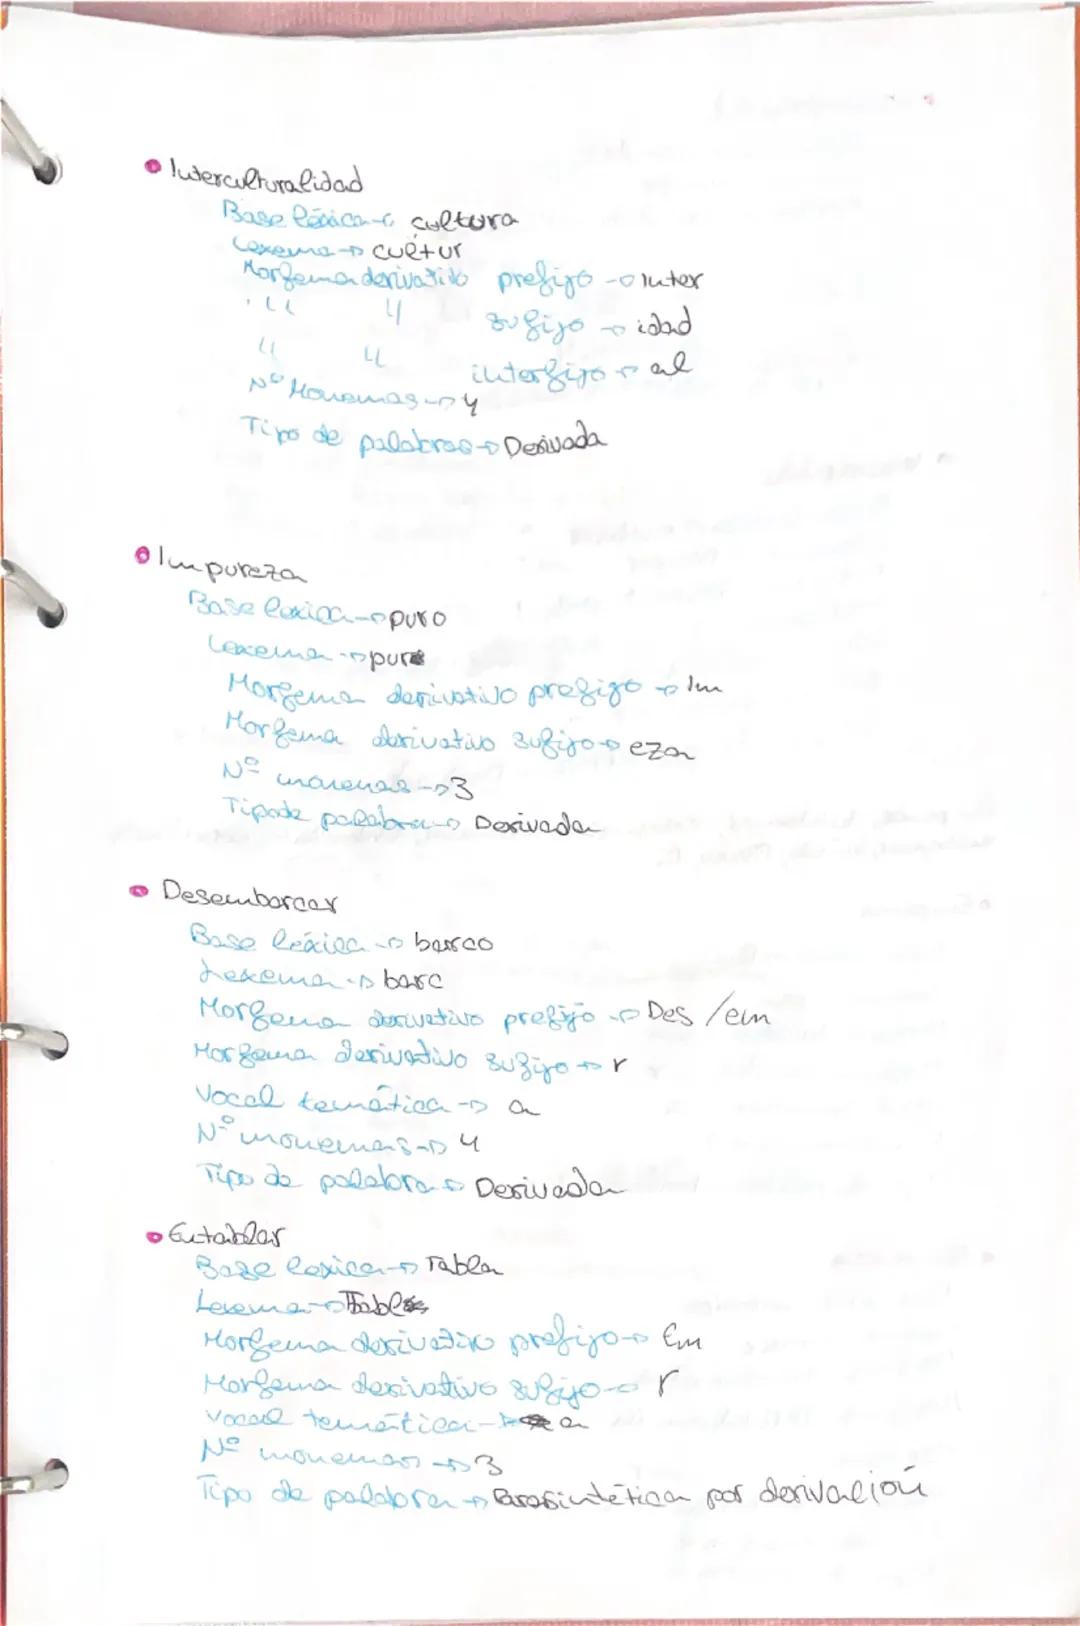 Interculturalidad
Base léxica → cultura
Lexema → cultur
Morfema derivativo prefijo → Inter
" " sufijo → idad
" " interfijo → al
Nº Monemas → 4
Tipo de palabras → Derivada
Impureza
Base lexica → puro
Lexema → pur
Morfema derivativo prefijo → Im
Morfema derivativo sufijo → eza
Nº monemas → 3
Tipo de palabra → Derivada
Desembarcar
Base léxica → barco
Lexema → barc
Morfema derivativo prefijo → Des / em
Morfema derivativo sufijo → r
Vocal temática → a
Nº monemas → 4
Tipo de palabra → Derivada
Entablar
Base lexica → Tabla
Lexema → Tabl
Morfema derivativo prefijo → Em
Morfema derivativo sufijo → r
Vocal temática → a
Nº monemas → 3
Tipo de palabra → Parasintética por derivación